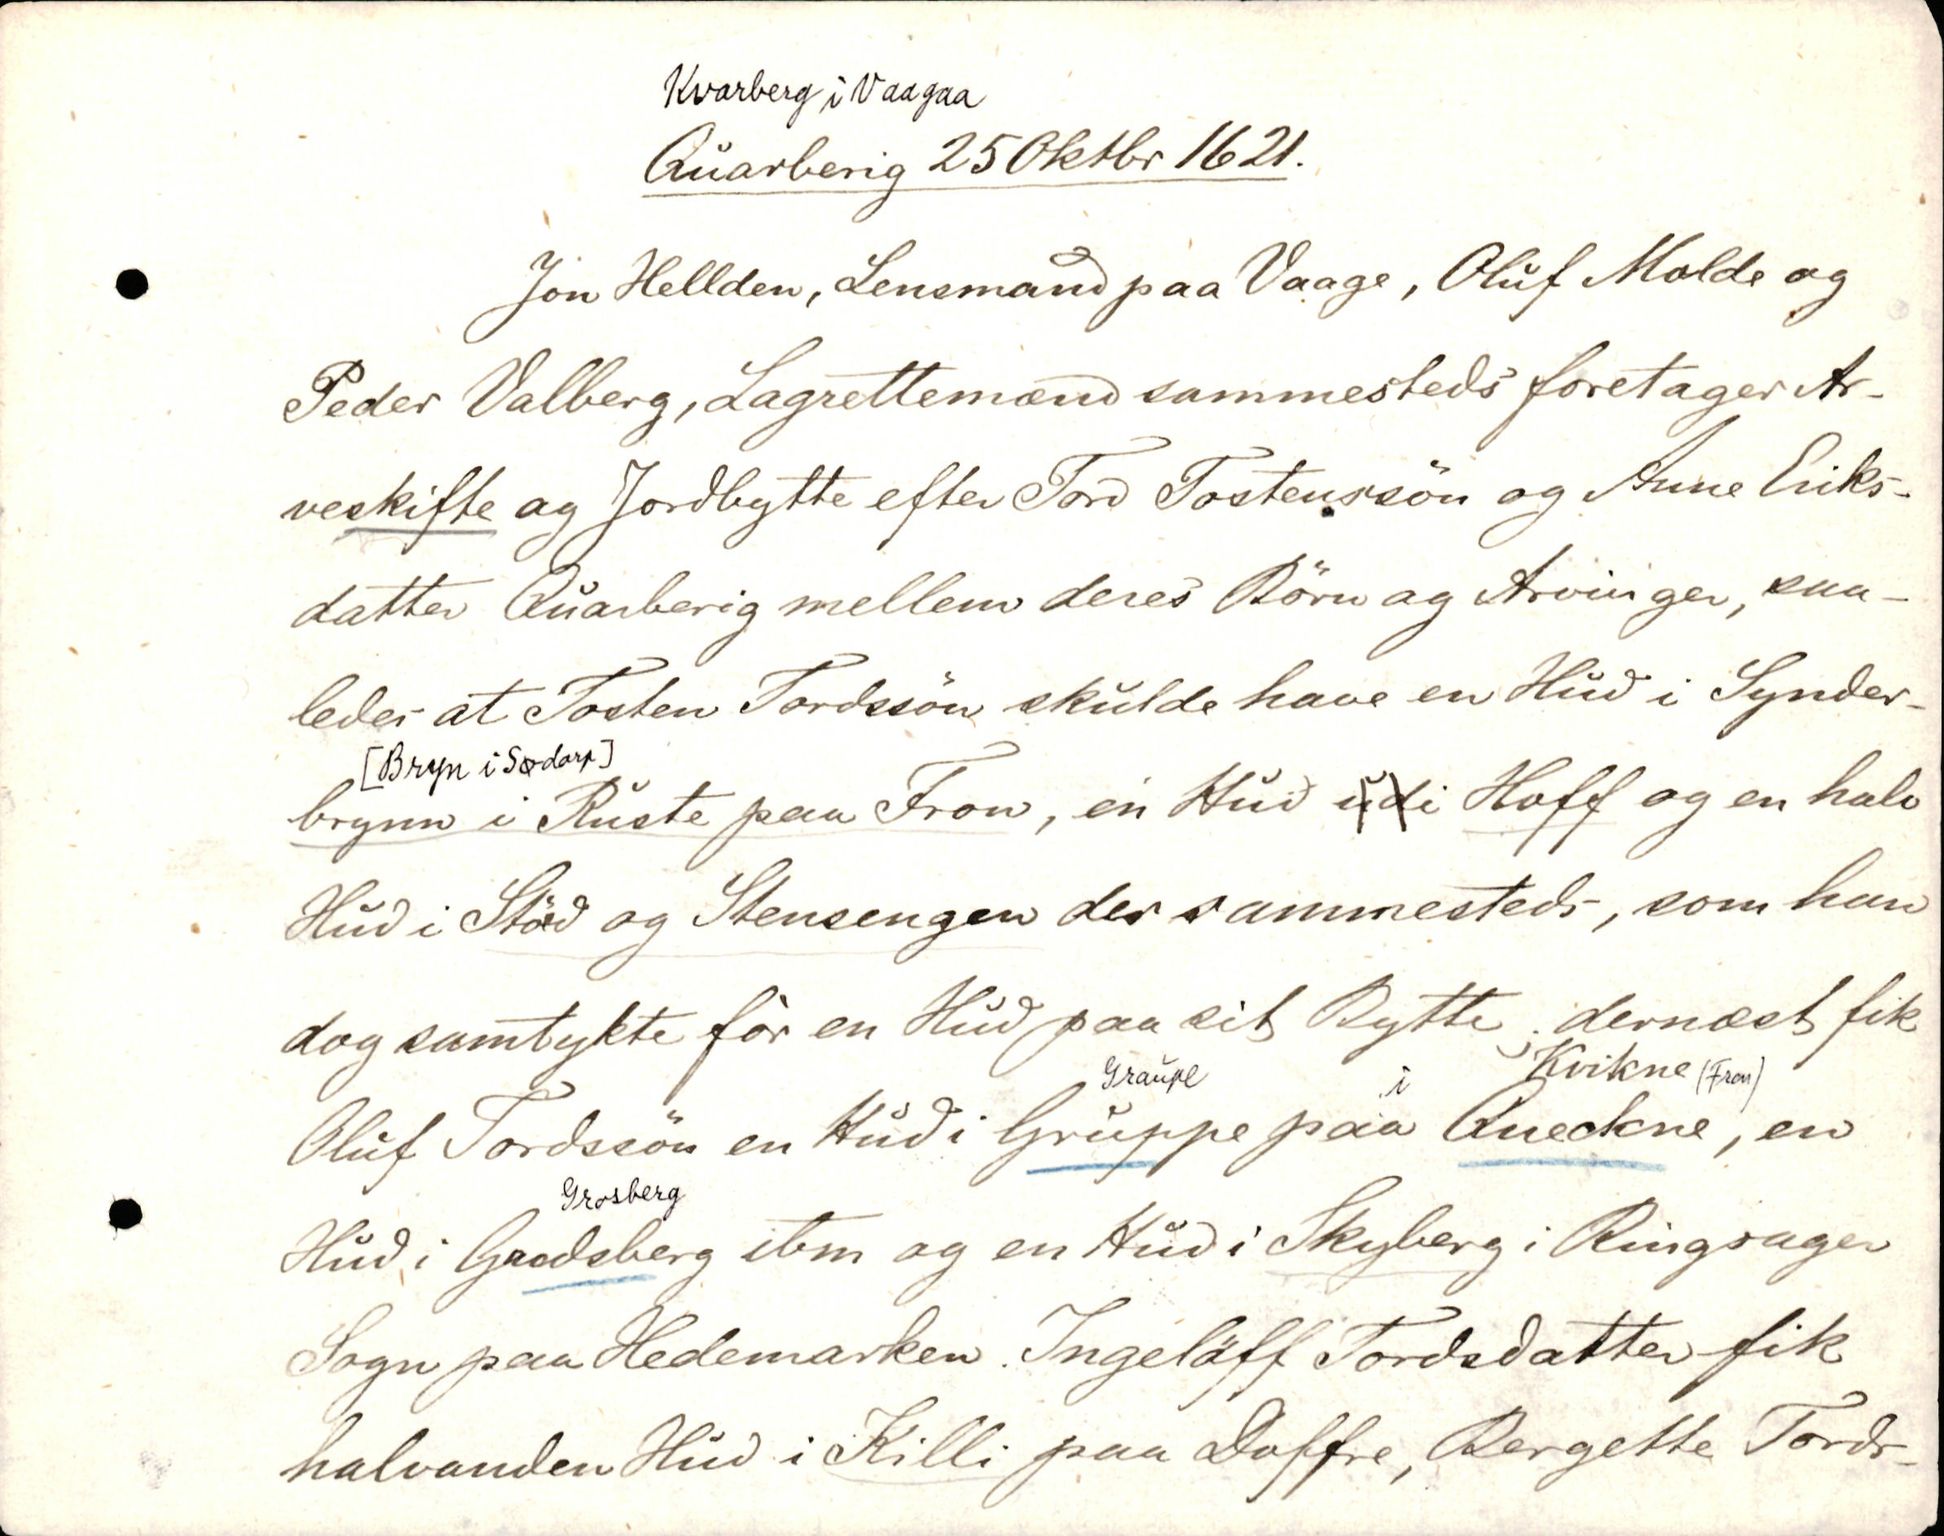 Kvarberg i Vaagaa
Quarberig 25 Oktbr 1621.
Jon Hellden, Lensmand paa Vaage, Oluf Molde og
Peder Valberg, Lagrettemænd sammesteds foretager Ar-
veskifte og Jordbytte efter Tord Tostenssön og Anne Eriks-
datter Quarberig mellem deres Börn og Arvinger, saa-
ledes at Tosten Tordssön skulde have en Hud i Synder-
[Bryn i Sødorp]
brynn i Ruste paa Fron, en Hud udi Hoff og en halv
Hud i Stöd og Stensengen der sammesteds, som han
dog samtykte för en Hud paa sit Bytte; dernæst fik
Graupe i Kvikne (Fron)
Oluf Tordssön en Hud i Gruppe paa Queckne, en
Grosberg
Hud i Grodsberg ibm og en Hud i Skyberg i Ringsager
Sogn paa Hedemarken. Ingeläff Tordsdatter fik
halvanden Hud i Killi paa Doffre, Bergette Tords-